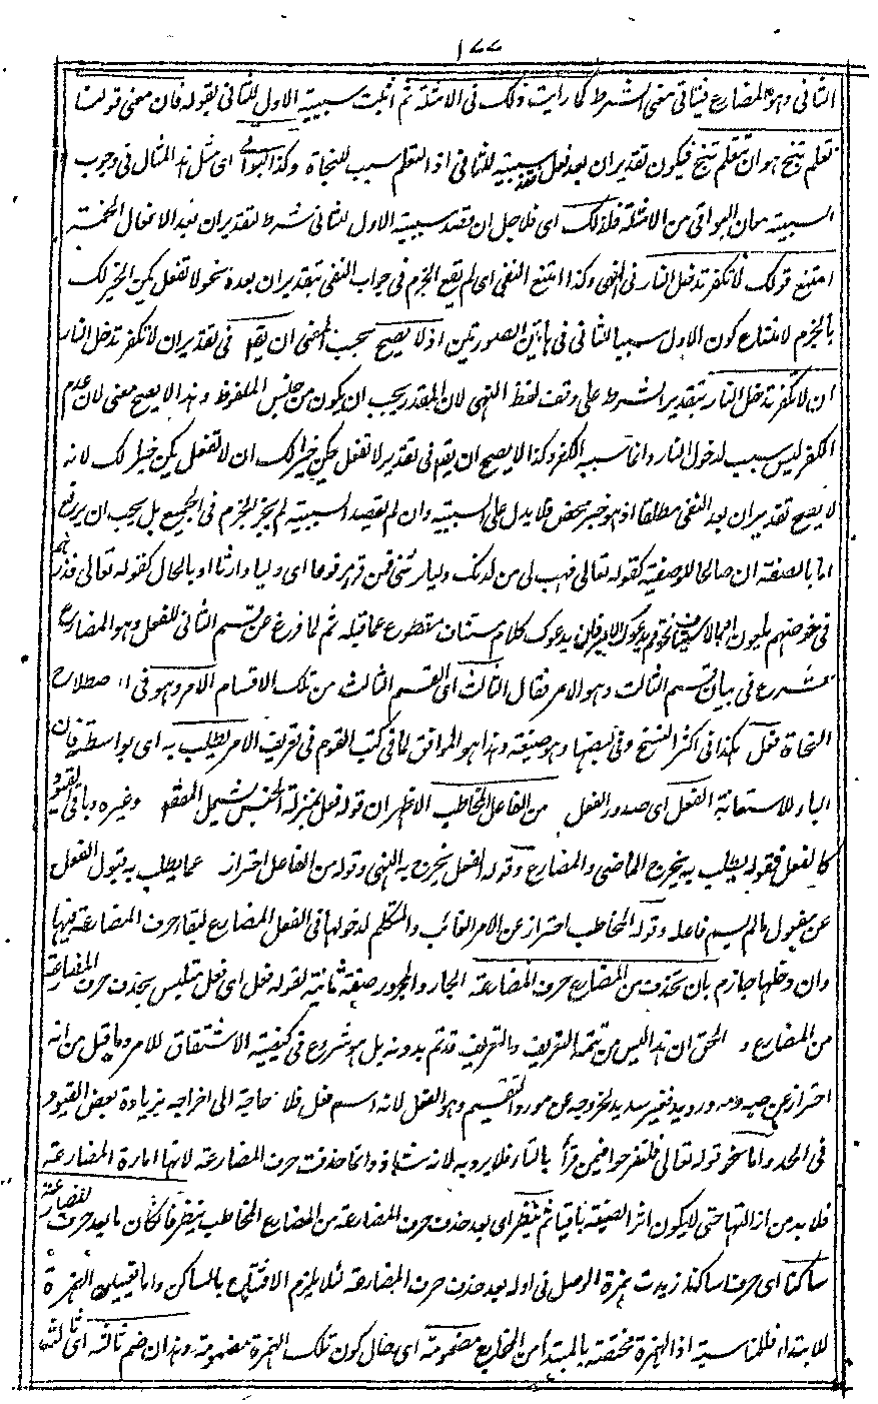 ١٧٧
الثانى وهو المضارع فيتاتى معنى الشرط كما رايت ذلك فى الامثلة ثم اثبت سببية الاول للثانى بقوله فان معنى قولنا
تعلم تنج هو ان تتعلم تنج فيكون تقدير ان بعد فعل سببيته للثانى اذ التعلم سبب للنجاة وكذا البواقى اى مثل هذا المثال فى وجوب
السببية معان البواقى من الامثلة فلذلك اى فلاجل ان قصد سببية الاول للثانى شرط لتقدير ان بعد الافعال الخمسة
امتنع قولك لا تكفر تدخل النار فى النهى وكذا امتنع النفى اى لم يقع الجزم فى جواب النفى بتقدير ان بعده نحو لا تفعل يكن الخير لك
بالجزم لامتناع كون الاول سببا للثانى فى هاتين الصورتين اذ لا يصح بحسب المعنى ان يقم فى تقدير ان لا تكفر تدخل النار
ان لا تكفر تدخل النار بتقدير الشرط على وفق لفظ النهى لان المقدر يجب ان يكون من جنس الملفوظ وهذا لا يصح معنى لان عدم
الكفر ليس سبب لدخول النار وانما سببه الكفر وكذا لا يصح ان يقم فى تقدير لا تفعل يكن خيرا لك ان لا تفعل يكن خيرا لك لانه
لا يصح تقدير ان بعد النفى مطلقا اذ هو خبر محض فلا يدل على السببية وان لم يقصد السببية لم يجز الجزم فى الجميع بل يجب ان يرفع
اما بالصفة ان صالحا للوصفية كقوله تعالى فهب لى من لدنك وليا يرثنى فمن قرء مرفوعا اى وليا وارثا او بالحال كقوله تعالى فذرهم
فى خوضهم يلعبون او بالاستيناف نحو قم يدعوك الامير فان يدعوك كلام مستانف مقطوع عما قبله ثم لما فرغ عن قسم الثانى للفعل وهو المضارع
شرع فى بيان قسم الثالث وهو الامر فقال الثالث اى القسم الثالث من تلك الاقسام الامر وهو فى اصطلاح
النحاة فعل هكذا فى اكثر النسخ وفى بعضها وهو صيغة وهذا هو الموافق لما فى كتب القوم فى تعريف الامر يطلب به اى بواسطته فان
الباء للاستعانة الفعل اى صدور الفعل من الفاعل المخاطب الاظهر ان قوله فعل بمنزلة الجنس يشمل المقصود وغيره وباقى القيود
كالفعل فقوله يطلب به يخرج الماضى والمضارع وقوله الفعل يخرج به النهى وقوله من الفاعل احتراز عما يطلب به قبول الفعل
عن مفعول ما لم يسم فاعله وقوله المخاطب احتراز عن الامر الغائب والمتكلم لدخولها فى الفعل المضارع لبقاء حرف المضارعة فيها
وان دخلها جازم بان تحذف من المضارع حرف المضارعة الجار والمجرور صفة ثانية لقوله فعل اى فعل متلبس بحذف حرف المضارعة
من المضارع و الحق ان هذا ليس من تتمة التعريف والتعريف قد تم بدونه بل هو شروع فى كيفية الاشتقاق للامر وما قيل من انه
احتراز عن صه ومه ورويد فغير سديد لخروجه عن مورد التقسيم وهو الفعل لانه اسم فعل فلا حاجة الى اخراجه بزيادة بعض القيود
فى الحد واما نحو قوله تعالى فلتفرحوا فيمن قرأ بالتاء فلا يرد به لانه شاذ وانما حذفت حرف المضارعة لانها امارة المضارعة
فلا بد من ازالتها حتى لا يكون اثر الصيغة باقيا ثم ينظر اى بعد حذف حرف المضارعة من المضارع المخاطب ينظر فان كان ما بعد حرف المضارعة
ساكنا اى حرفا ساكنا زيدت همزة الوصل فى اوله بعد حذف حرف المضارعة لئلا يلزم الافتتاح بالساكن واما تعيين الهمزة
للابتداء فللمناسبة اذ الهمزة مختصة بالمبتدأ من المخارج مضمومة اى حال كون تلك الهمزة مضمومة وهذا ان ضم ثالثه اى ثالث